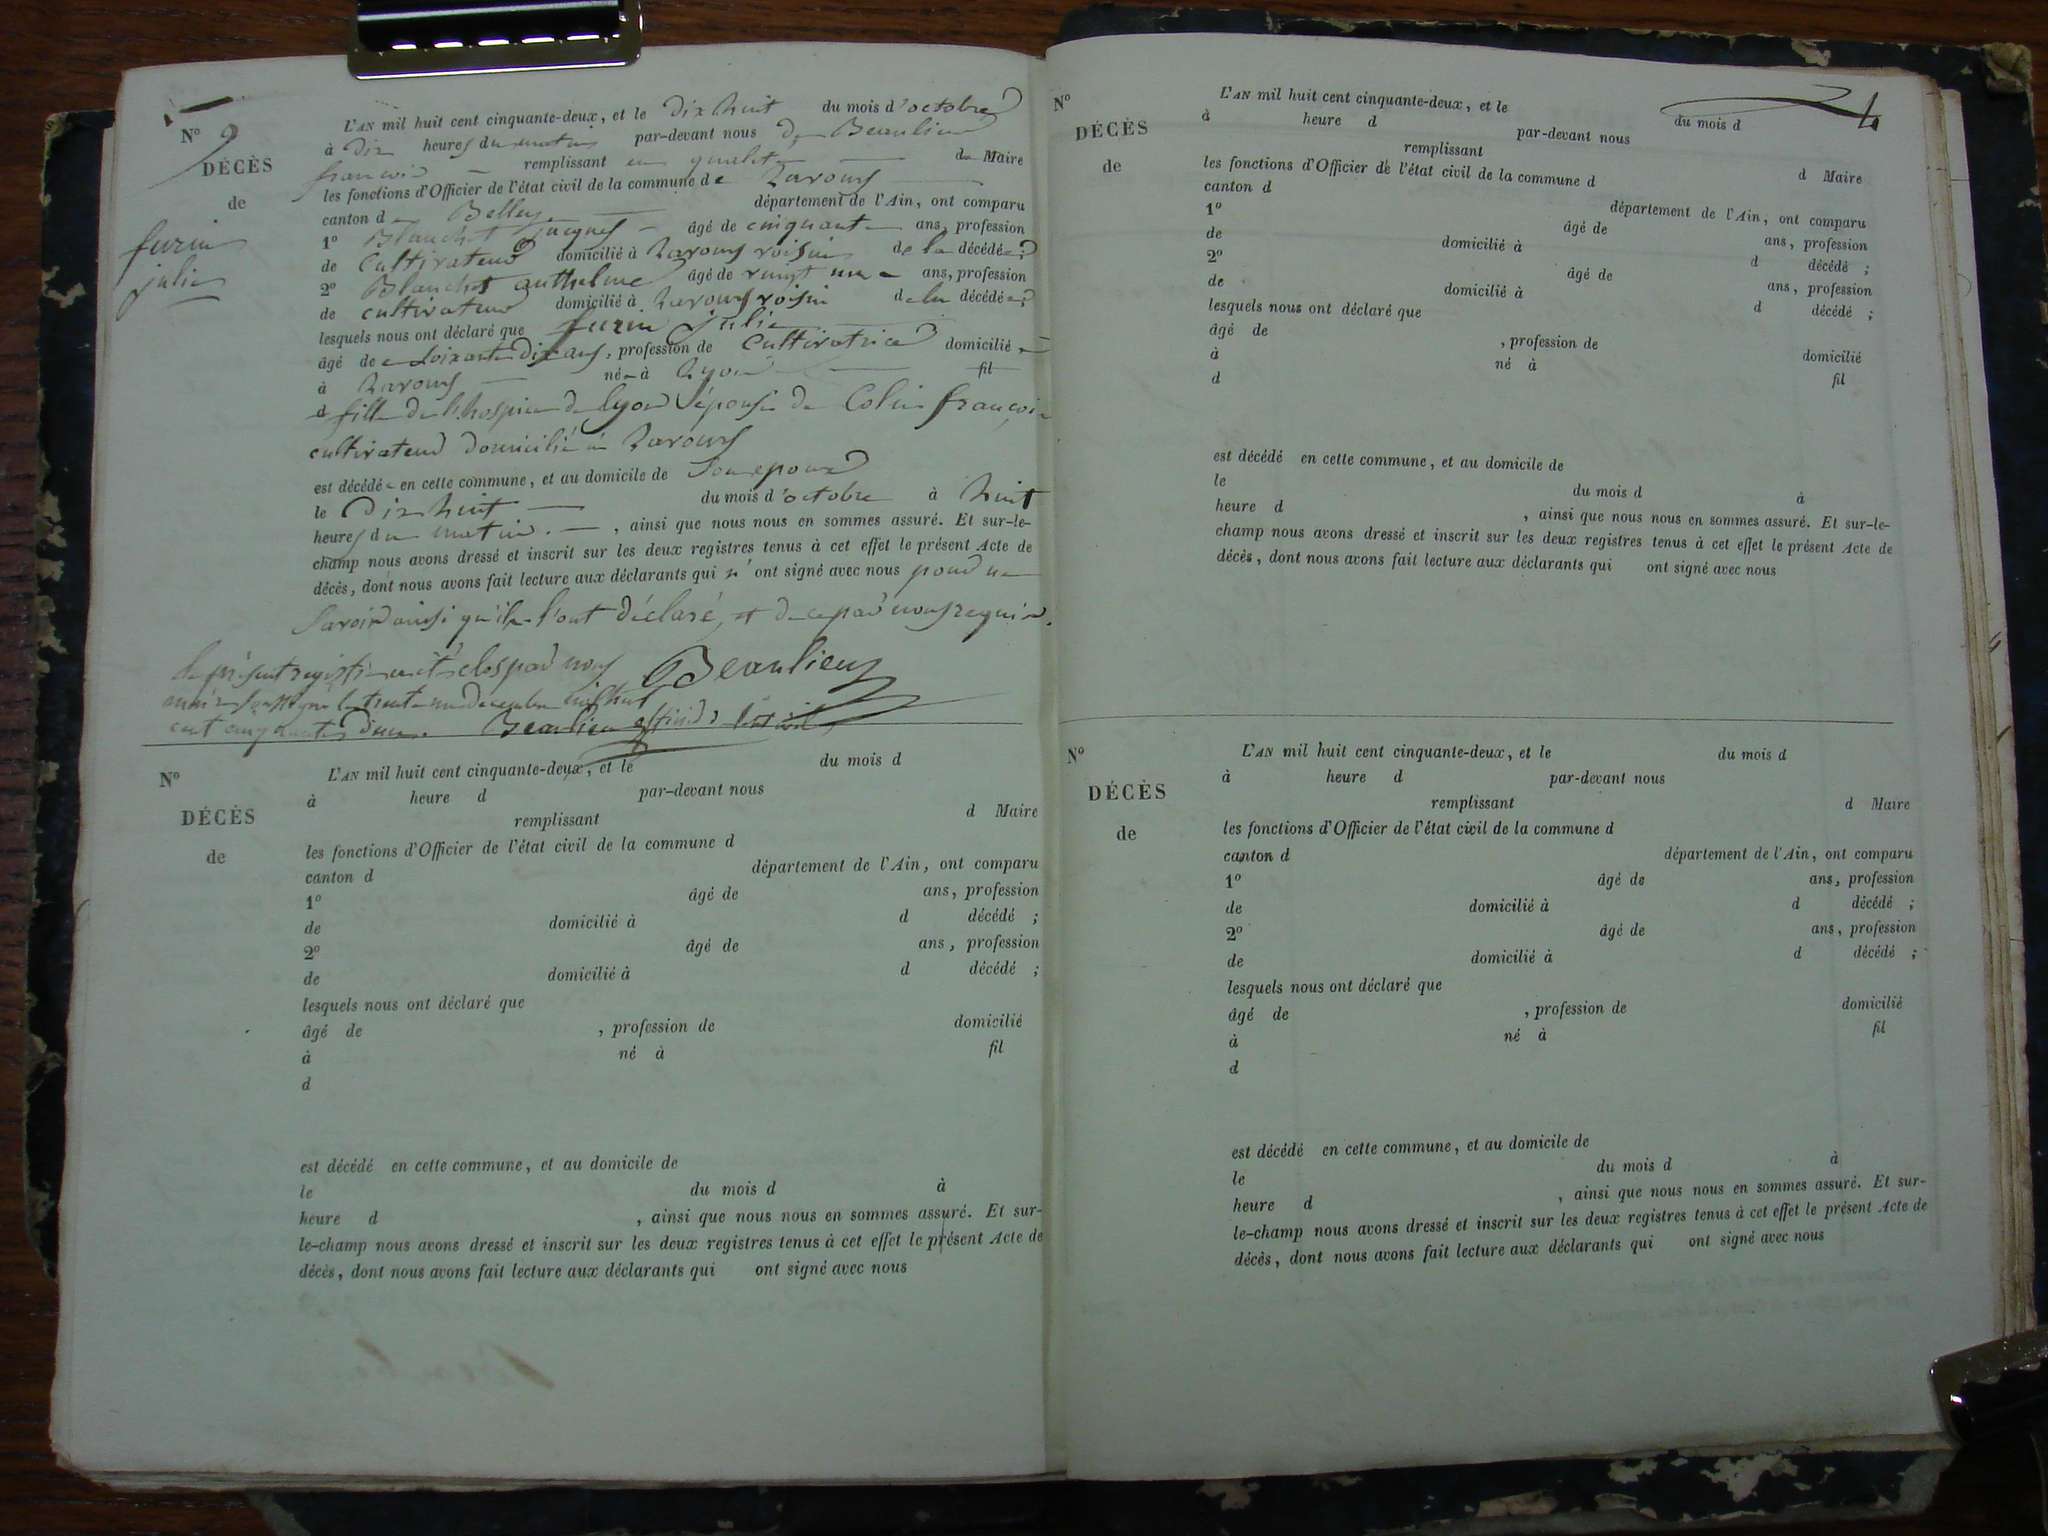 N° 9
DÉCÈS
de
furin
julie
L'AN mil huit cent cinquante-deux, et le dix huit du mois d'octobre
à Dix heures du matin par-devant nous de Beaulieu
françois remplissant en qualité de Maire
les fonctions d'Officier de l'état civil de la commune de
canton de Belley département de l'Ain, ont comparu
1° Blanchet jacques âgé de cinquante ans, profession
de Cultivateur domicilié à voisin de la décédée ;
2° Blanchet anthelme âgé de vingt un ans, profession
de cultivateur domicilié à voisin de la décédée ;
lesquels nous ont déclaré que furin julie
âgé de Soixante Dix ans, profession de Cultivatrice domicilié
à né à Lyon fil
d fille de l'hospice de lyon épouse de Colin françois
cultivateur domicilié à
est décédée en cette commune, et au domicile de Son epoux
le Dix huit du mois d'octobre à huit
heures du matin. , ainsi que nous nous en sommes assuré. Et sur-le-
champ nous avons dressé et inscrit sur les deux registres tenus à cet effet le présent Acte de
décès, dont nous avons fait lecture aux déclarants qui n'ont signé avec nous pour ne
Savoir ainsi qu'ils l'ont déclaré, et de ce par nous requis.
Le présent registre a été clos par nous Beaulieu
maire soussigné le trente un décembre mil huit
cent cinquante deux. Beaulieu
N°
DÉCÈS
de
L'AN mil huit cent cinquante-deux, et le du mois d
à heure d par-devant nous
remplissant d Maire
les fonctions d'Officier de l'état civil de la commune d
canton d département de l'Ain, ont comparu
1° âgé de ans, profession
de domicilié à d décédé ;
2° âgé de ans, profession
de domicilié à d décédé ;
lesquels nous ont déclaré que
âgé de , profession de domicilié
à né à fil
d
est décédé en cette commune, et au domicile de
le du mois d à
heure d , ainsi que nous nous en sommes assuré. Et sur-
le-champ nous avons dressé et inscrit sur les deux registres tenus à cet effet le présent Acte de
décès, dont nous avons fait lecture aux déclarants qui ont signé avec nous
N°
DÉCÈS
de
L'AN mil huit cent cinquante-deux, et le du mois d
à heure d par-devant nous
remplissant d Maire
les fonctions d'Officier de l'état civil de la commune d
canton d département de l'Ain, ont comparu
1° âgé de ans, profession
de domicilié à d décédé ;
2° âgé de ans, profession
de domicilié à d décédé ;
lesquels nous ont déclaré que
âgé de , profession de domicilié
à né à fil
d
est décédé en cette commune, et au domicile de
le du mois d à
heure d , ainsi que nous nous en sommes assuré. Et sur-le-
champ nous avons dressé et inscrit sur les deux registres tenus à cet effet le présent Acte de
décès, dont nous avons fait lecture aux déclarants qui ont signé avec nous
N°
DÉCÈS
de
L'AN mil huit cent cinquante-deux, et le du mois d
à heure d par-devant nous
remplissant d Maire
les fonctions d'Officier de l'état civil de la commune d
canton d département de l'Ain, ont comparu
1° âgé de ans, profession
de domicilié à d décédé ;
2° âgé de ans, profession
de domicilié à d décédé ;
lesquels nous ont déclaré que
âgé de , profession de domicilié
à né à fil
d
est décédé en cette commune, et au domicile de
le du mois d à
heure d , ainsi que nous nous en sommes assuré. Et sur-
le-champ nous avons dressé et inscrit sur les deux registres tenus à cet effet le présent Acte de
décès, dont nous avons fait lecture aux déclarants qui ont signé avec nous